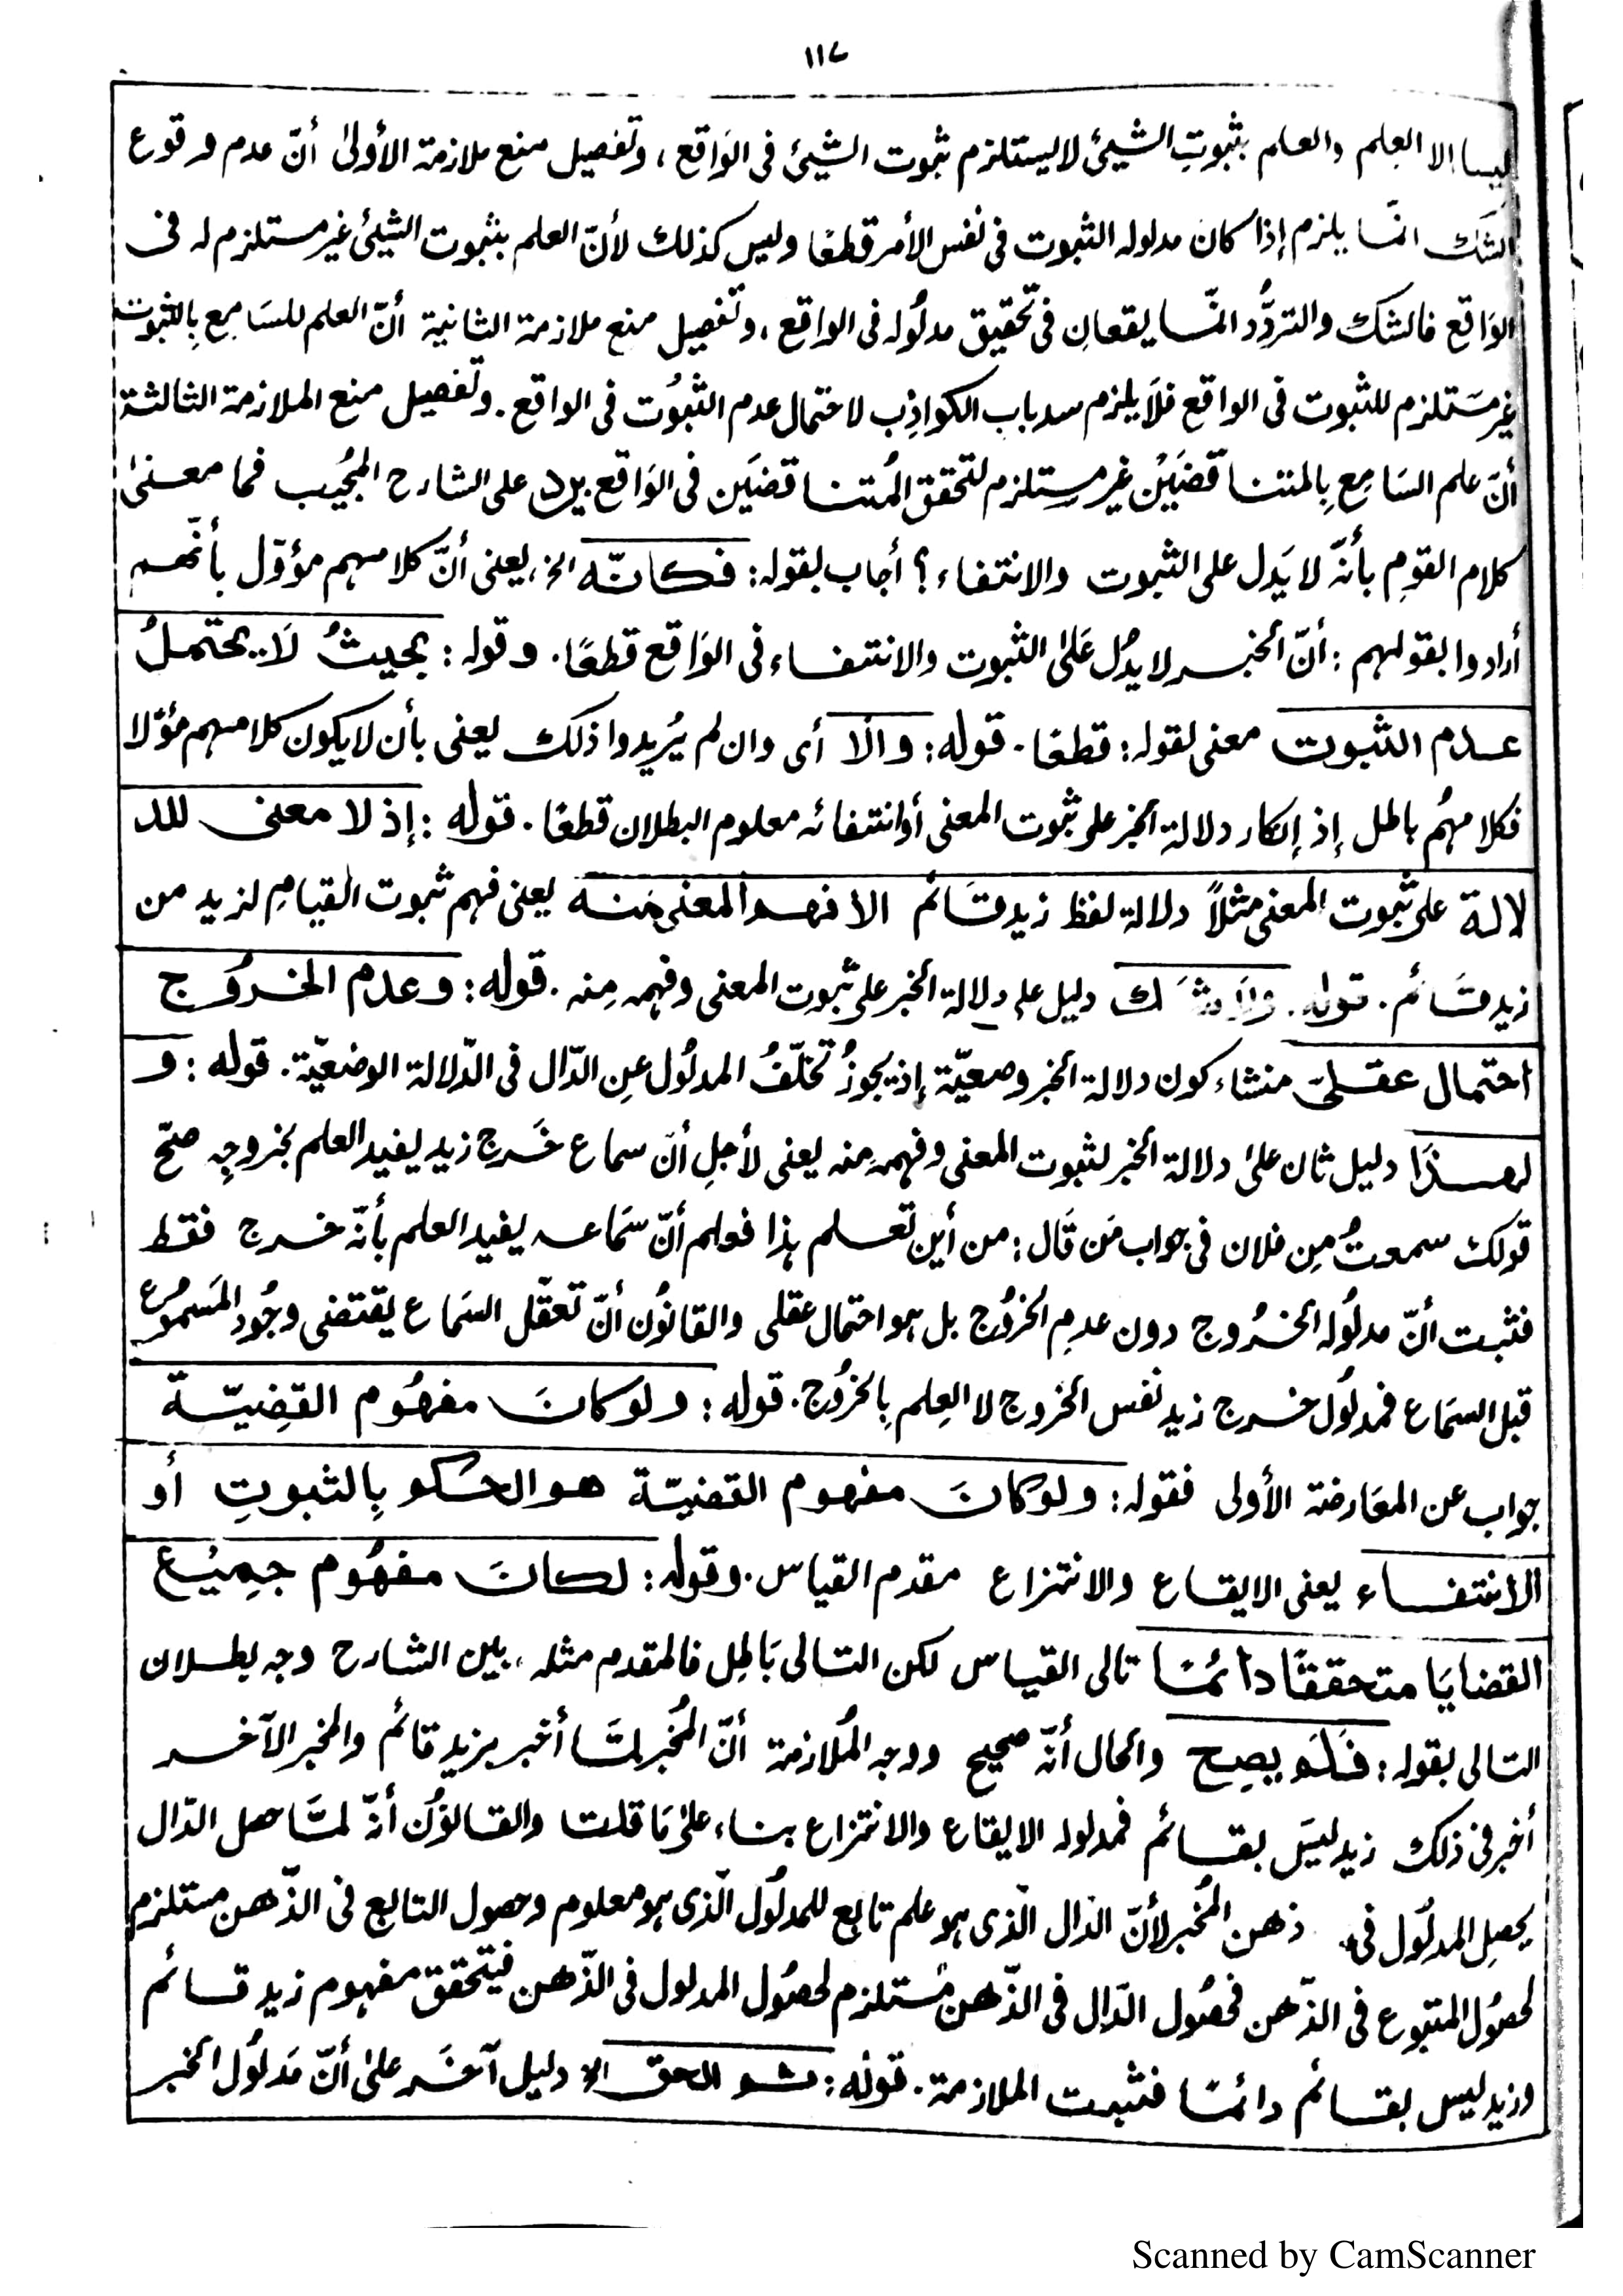 ١١٧
ليسا إلا العلم والعلم بثبوت الشيئ لا يستلزم ثبوت الشيئ فى الوَاقع، وتفصيل منع ملازمة الأولىٰ أنّ عدم وقوع
الشَك انمّا يلزم إذا كان مدلوله الثبوت فى نفس الأمر قطعًا وليس كذلك لأنّ العلم بثبوت الشيئ غير مستلزم له فى
الوَاقع فالشك والتردُّد انمّا يقعانِ فى تحقيق مدلُوله فى الواقع، وتفصيل منع ملازمة الثانية أنّ العلم للسَامِع بِالثبوت
غير مسَتلزم للثبوت فى الواقع فلَا يلزم سد باب الكواذِب لاحتمال عدم الثبُوت فى الواقع. وتفصيل منع الملازمة الثالثة
أنّ علم السَامِع بِالمتناقضَيْن غير مستلزم لتحقق المُتناقضَين فى الوَاقع يرد على الشارح المجُيب فما معنىٰ
كلام القومِ بأنّه لا يَدل على الثبوت والانتفاء؟ أجاب بقوله: فكانّه الخ، يعنى أنّ كلامهم مؤوّل بأنّهم
أرادوا بقولهم: أنّ الخبر لا يدُل عَلىٰ الثبوت والانتفاء فى الوَاقع قطعًا. وقوله: بحيثُ لَا يحتملُ
عدم الثبوت معنى لقوله: قطعًا. قوله: والّا أى وان لم يُريدوا ذلك يعنى بأن لا يكون كلامهم مؤوّلا
فكلامهُم باطل إذ إنكار دلالة الخبر على ثبوت المعنى أو انتفائه معلوم البطلان قطعًا. قوله: إذ لا معنى للد
لالة على ثبوت المعنى مثلاً دلالة لفظ زيد قَائم الا فهم المعنى مَنه يعنى فهم ثبوت القيامِ لزيد من
زيد قَائم. قوله. ولَا شَك دليل على دلالة الخبر على ثبوت المعنى وفهمه مِنه. قوله: وعدم الخرُوج
احتمال عقلىّ منشاء كون دلالة الخبر وضعيّة إذ يجوزُ تخلّفُ المدلُول عنِ الدّال فى الدّلالة الوضعيّة. قوله: و
لهذَا دليل ثان علىٰ دلالة الخبر لثبوت المعنى وفهمهِ منه يعنى لأجلِ أنّ سماع خَرج زيد يفيد العلم بخروجِه صحّ
قولك سمعتُ مِن فلان فى جواب مَن قَال: من أين تعلم هذا فعلم أنّ سَماعه يفيد العلم بأنّه خرج فقط
فثبت أنّ مدلُوله الخرُوج دون عدمِ الخرُوج بل هو احتمال عقلى والقانُون أنّ تعقّل السَماع يقتضى وجُود المَسمُوع
قبل السمَاع فمدلُول خرج زيد نفس الخروج لا العِلم بِالخرُوج. قوله: ولو كانَ مفهُوم القضِيّة
جواب عن المعَارضة الأولى فقوله: ولو كانَ مفهوم القضيّة هو الحكم بِالثبوتِ أو
الانتفاء يعنى الايقاع والانتزاع مقدم القياس. وقوله: لكانَ مفهُوم جميْع
القضايَا متحققًا دائمًا تالى القياس لكن التالى بَاطِل فالمقدم مثله، بين الشارح وجه بطلان
التالى بقوله: فَلَم يصِح والحال أنّه صحيح ووجه المُلازمة أنّ المُخبر لمَّا أخبر بزيد قائم والمخبر الآخر
أخبر فى ذلك زيد ليسَ بقائم فمدلوله الايقاع والانتزاع بناء علىٰ مَا قلت والقانوُن أنّه لمَّا حصل الدّال
يحصِل المدلُول فى ذهن المُخبر لأنّ الدّال الّذى هو علم تابع للمدلُول الّذى هو معلوم وحصول التابع فى الذّهن مستلزم
لحصُول المتبوع فى الذّهن فحصُول الدّال فى الذّهن مُستلزم لحصُول المدلول فى الذّهن فيتحقق مفهوم زيد قائم
وزيد ليس بقائم دائمًا فثبت الملازمة. قوله: ثم الحق الخ دليل آخَر علىٰ أنّ مَدلُول الخبر
Scanned by CamScanner